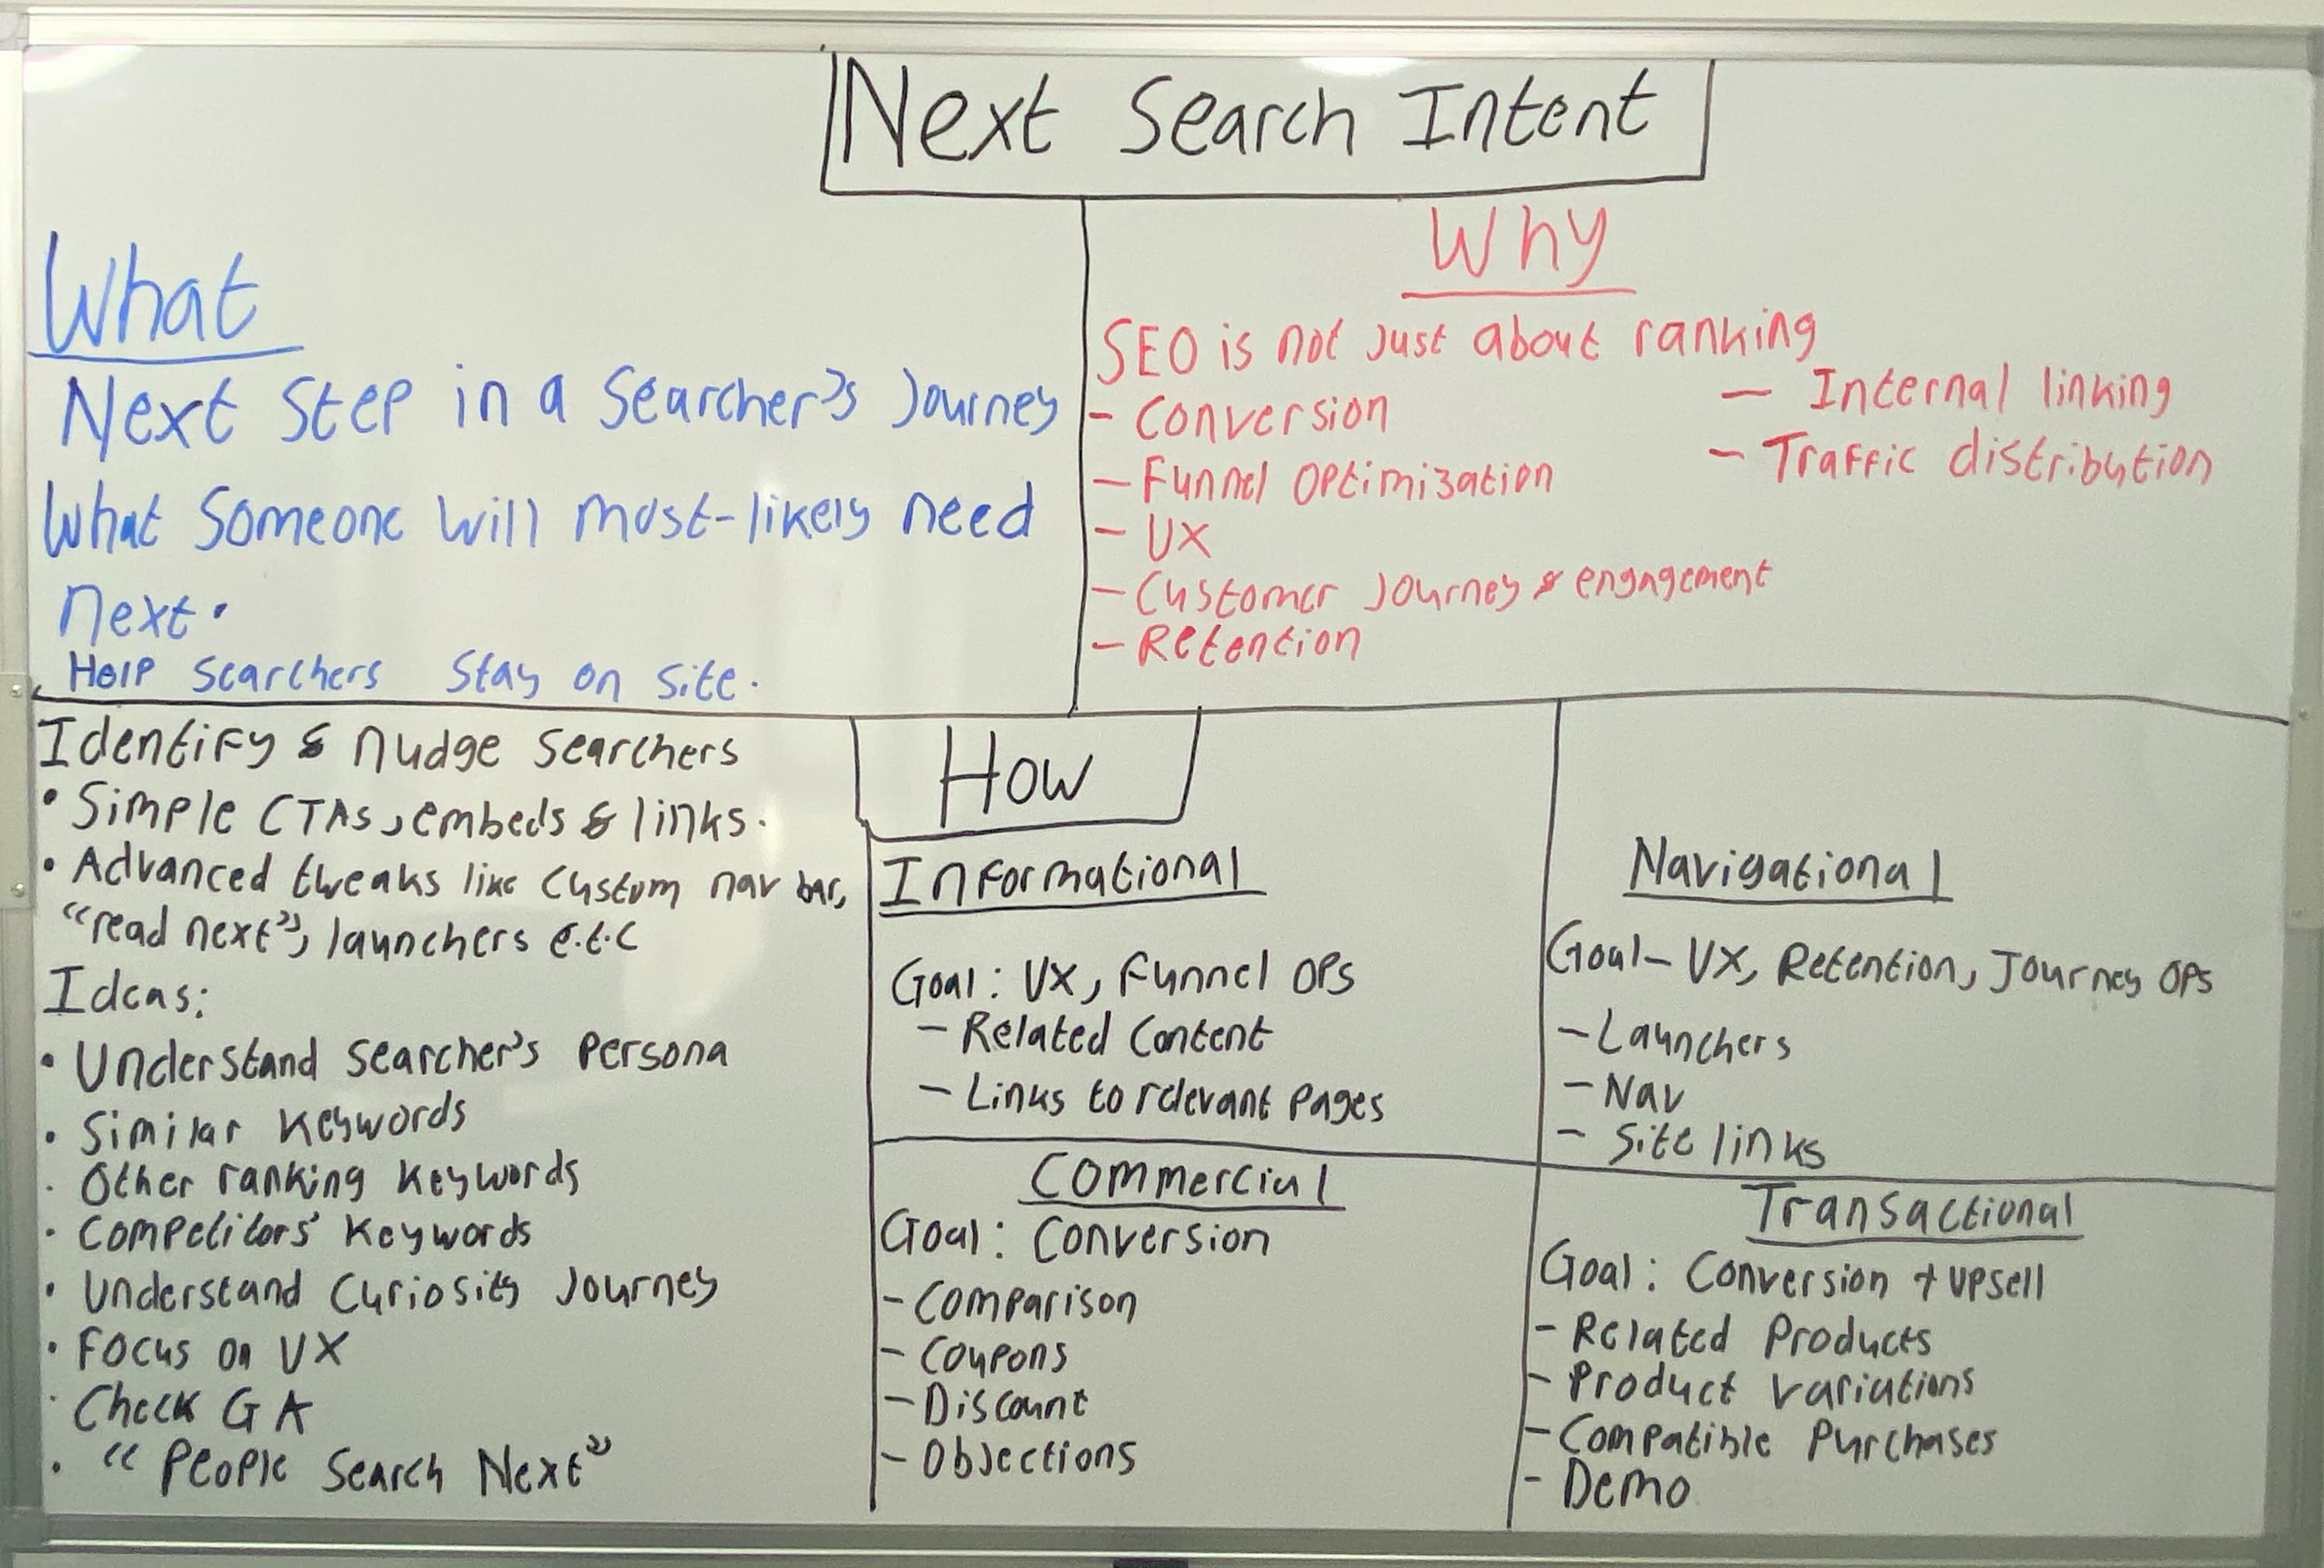 Next Search Intent
What
Next Step in a Searcher's Journey
What Someone will most-likely need
next.
Help Searchers Stay on site.
Why
SEO is not just about ranking
- Conversion
- Funnel Optimization
- UX
- Customer Journey & engagement
- Retention
- Internal linking
- Traffic distribution
How
Identify & nudge searchers
• Simple CTAs, embeds & links.
• Advanced tweaks like custom nav bar,
"read next", launchers e.t.c
Ideas:
• Understand searcher's persona
• Similar keywords
• Other ranking keywords
• Competitors' keywords
• Understand Curiosity Journey
• Focus on UX
• Check GA
• "People Search Next"
Informational
Goal: UX, Funnel OPs
- Related Content
- Links to relevant pages
Navigational
Goal- UX, Retention, Journey OPs
- Launchers
- Nav
- Site links
Commercial
Goal: Conversion
- Comparison
- Coupons
- Discount
- Objections
Transactional
Goal: Conversion + upsell
- Related Products
- Product variations
- Compatible Purchases
- Demo